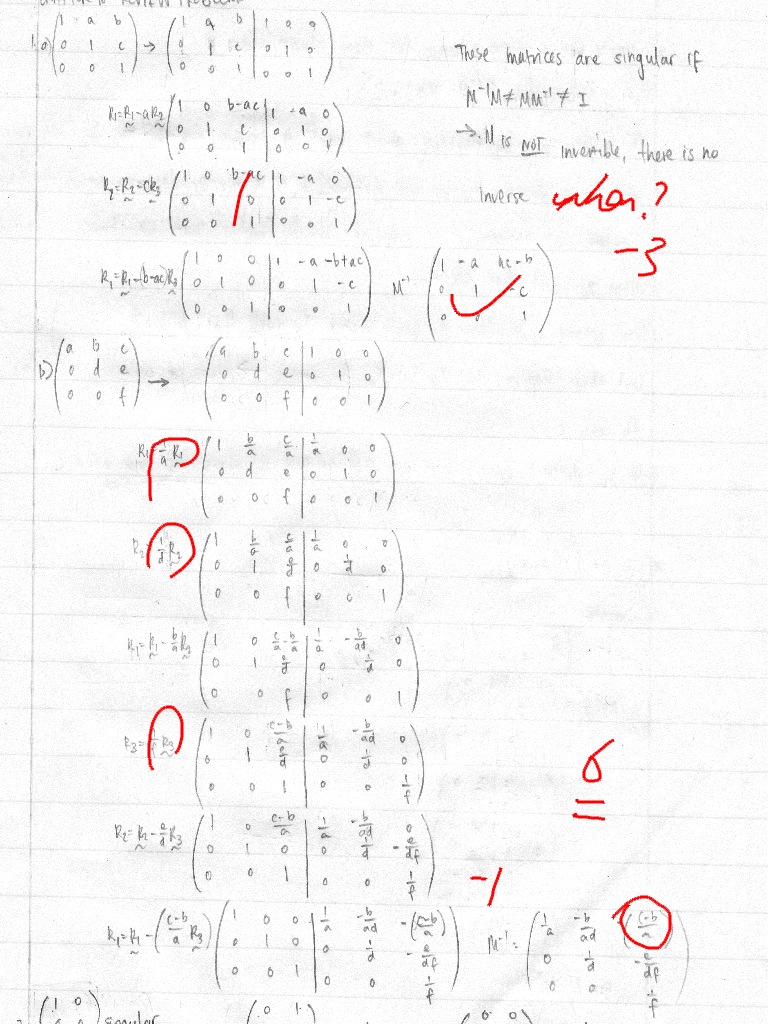 REVIEW PROBLEMS
1. a) ( 1 a b ) → ( 1 a b | 1 0 0 )
( 0 1 c ) ( 0 1 c | 0 1 0 )
( 0 0 1 ) ( 0 0 1 | 0 0 1 )
These matrices are singular if
M⁻¹M ≠ MM⁻¹ ≠ I
→ M is NOT invertible, there is no
inverse when?
-3
R₁=R₁-aR₂ ( 1 0 b-ac | 1 -a 0 )
( 0 1 c | 0 1 0 )
( 0 0 1 | 0 0 1 )
R₂=R₂-cR₃ ( 1 0 b-ac | 1 -a 0 )
( 0 1 0 | 0 1 -c )
( 0 0 1 | 0 0 1 )
R₁=R₁-(b-ac)R₃ ( 1 0 0 | 1 -a -b+ac ) M⁻¹ ( 1 -a ac-b )
( 0 1 0 | 0 1 -c ) ( 0 1 -c )
( 0 0 1 | 0 0 1 ) ( 0 0 1 )
b) ( a b c ) → ( a b c | 1 0 0 )
( 0 d e ) ( 0 d e | 0 1 0 )
( 0 0 f ) ( 0 0 f | 0 0 1 )
R₁=1/a R₁ ( 1 b/a c/a | 1/a 0 0 )
( 0 d e | 0 1 0 )
( 0 0 f | 0 0 1 )
R₂=1/d R₂ ( 1 b/a c/a | 1/a 0 0 )
( 0 1 e/d | 0 1/d 0 )
( 0 0 f | 0 0 1 )
R₁=R₁-b/a R₂ ( 1 0 c/a-b/a | 1/a -b/ad 0 )
( 0 1 e/d | 1/d 0 )
( 0 0 f | 0 0 1 )
R₃=1/f R₃ ( 1 0 c-b/a | 1/a -b/ad 0 )
( 0 1 e/d | 0 1/d 0 )
( 0 0 1 | 0 0 1/f )
6
R₂=R₂-e/d R₃ ( 1 0 c-b/a | 1/a -b/ad 0 )
( 0 1 0 | 0 1/d -e/df )
( 0 0 1 | 0 0 1/f )
-1
R₁=R₁-(c-b/a R₃) ( 1 0 0 | 1/a -b/ad -(c-b/a) ) M⁻¹= ( 1/a -b/ad -(c-b/a) )
( 0 1 0 | 1/d -e/df ) ( 0 1/d -e/df )
( 0 0 1 | 0 0 1/f ) ( 0 0 1/f )
( 1 0 ) singular